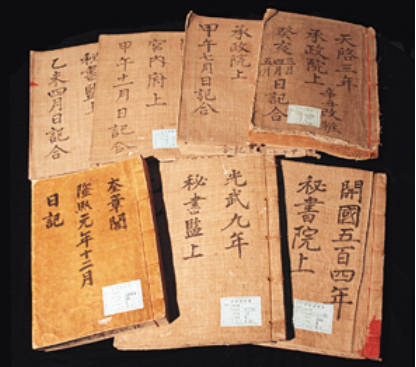 天啓三年
承政院上
癸亥
日記合
承政院上
甲午七月日記合
宮內府上
甲午十一月日記合
秘書監上
乙未四月日記合
開國五百四年
秘書院上
光武九年
秘書監上
奎章閣
隆熙元年十二月
日記